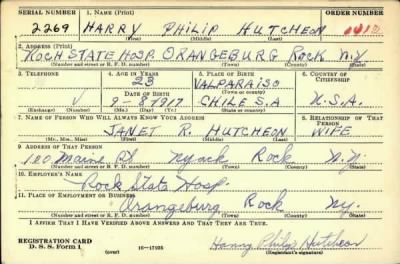 SERIAL NUMBER 1. NAME (Print) ORDER NUMBER
2269 HARRY PHILIP HUTCHEON
(First) (Middle) (Last)
2. ADDRESS (Print)
ROCH STATE HOSP. ORANGEBURG ROCK N.Y.
(Number and street or R. F. D. number) (Town) (County) (State)
3. TELEPHONE 4. AGE IN YEARS 5. PLACE OF BIRTH 6. COUNTRY OF CITIZENSHIP
23 VALPARAISO
DATE OF BIRTH (Town or county)
9-8-1917 CHILE S.A U.S.A.
(Exchange) (Number) (Mo.) (Day) (Yr.) (State or country)
7. NAME OF PERSON WHO WILL ALWAYS KNOW YOUR ADDRESS 8. RELATIONSHIP OF THAT PERSON
JANET R. HUTCHEON WIFE
(Mr., Mrs., Miss) (First) (Middle) (Last)
9. ADDRESS OF THAT PERSON
100 Maine St Nyack Rock N.Y.
(Number and street or R. F. D. number) (Town) (County) (State)
10. EMPLOYER'S NAME
Rock State Hosp.
11. PLACE OF EMPLOYMENT OR BUSINESS
Orangeburg Rock NY.
(Number and street or R. F. D. number) (Town) (County) (State)
I AFFIRM THAT I HAVE VERIFIED ABOVE ANSWERS AND THAT THEY ARE TRUE.
REGISTRATION CARD
D. S. S. Form 1 (over) 16-17105 Harry Philip Hutcheon
(Registrant's signature)